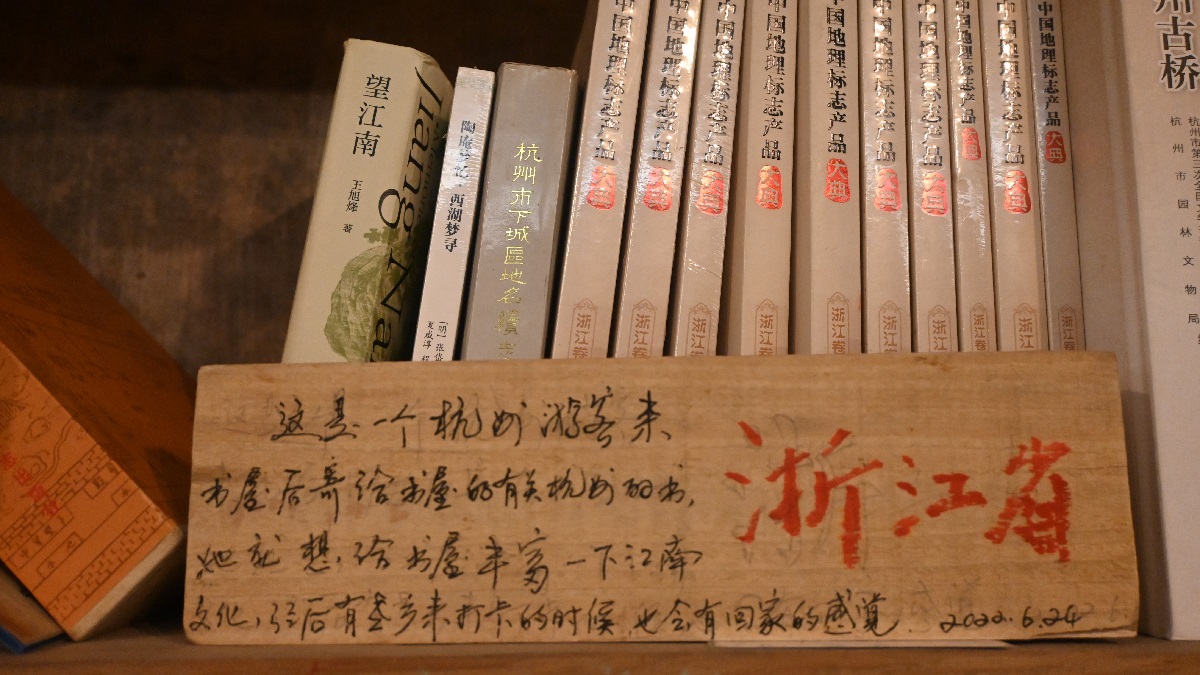 望江南
王旭烽 著
Jiang Nan
陶庵梦忆·西湖梦寻
[明] 张岱
夏咸淳
杭州市下城區地名
中国地理标志产品大典
浙江卷
中国地理标志产品大典
浙江卷
中国地理标志产品大典
浙江卷
中国地理标志产品大典
浙江卷
中国地理标志产品大典
浙江卷
中国地理标志产品大典
浙江卷
中国地理标志产品大典
浙江卷
中国地理标志产品大典
浙江卷
中国地理标志产品大典
浙江卷
中国地理标志产品大典
浙江卷
州古桥
杭州市园林文物局
杭州市第
这是一个杭州游客来
书屋后寄给书屋的有关杭州的书,
她就想,给书屋丰富一下江南
文化,以后有老乡来打卡的时候,也会有回家的感觉. 2022.6.24
浙江省